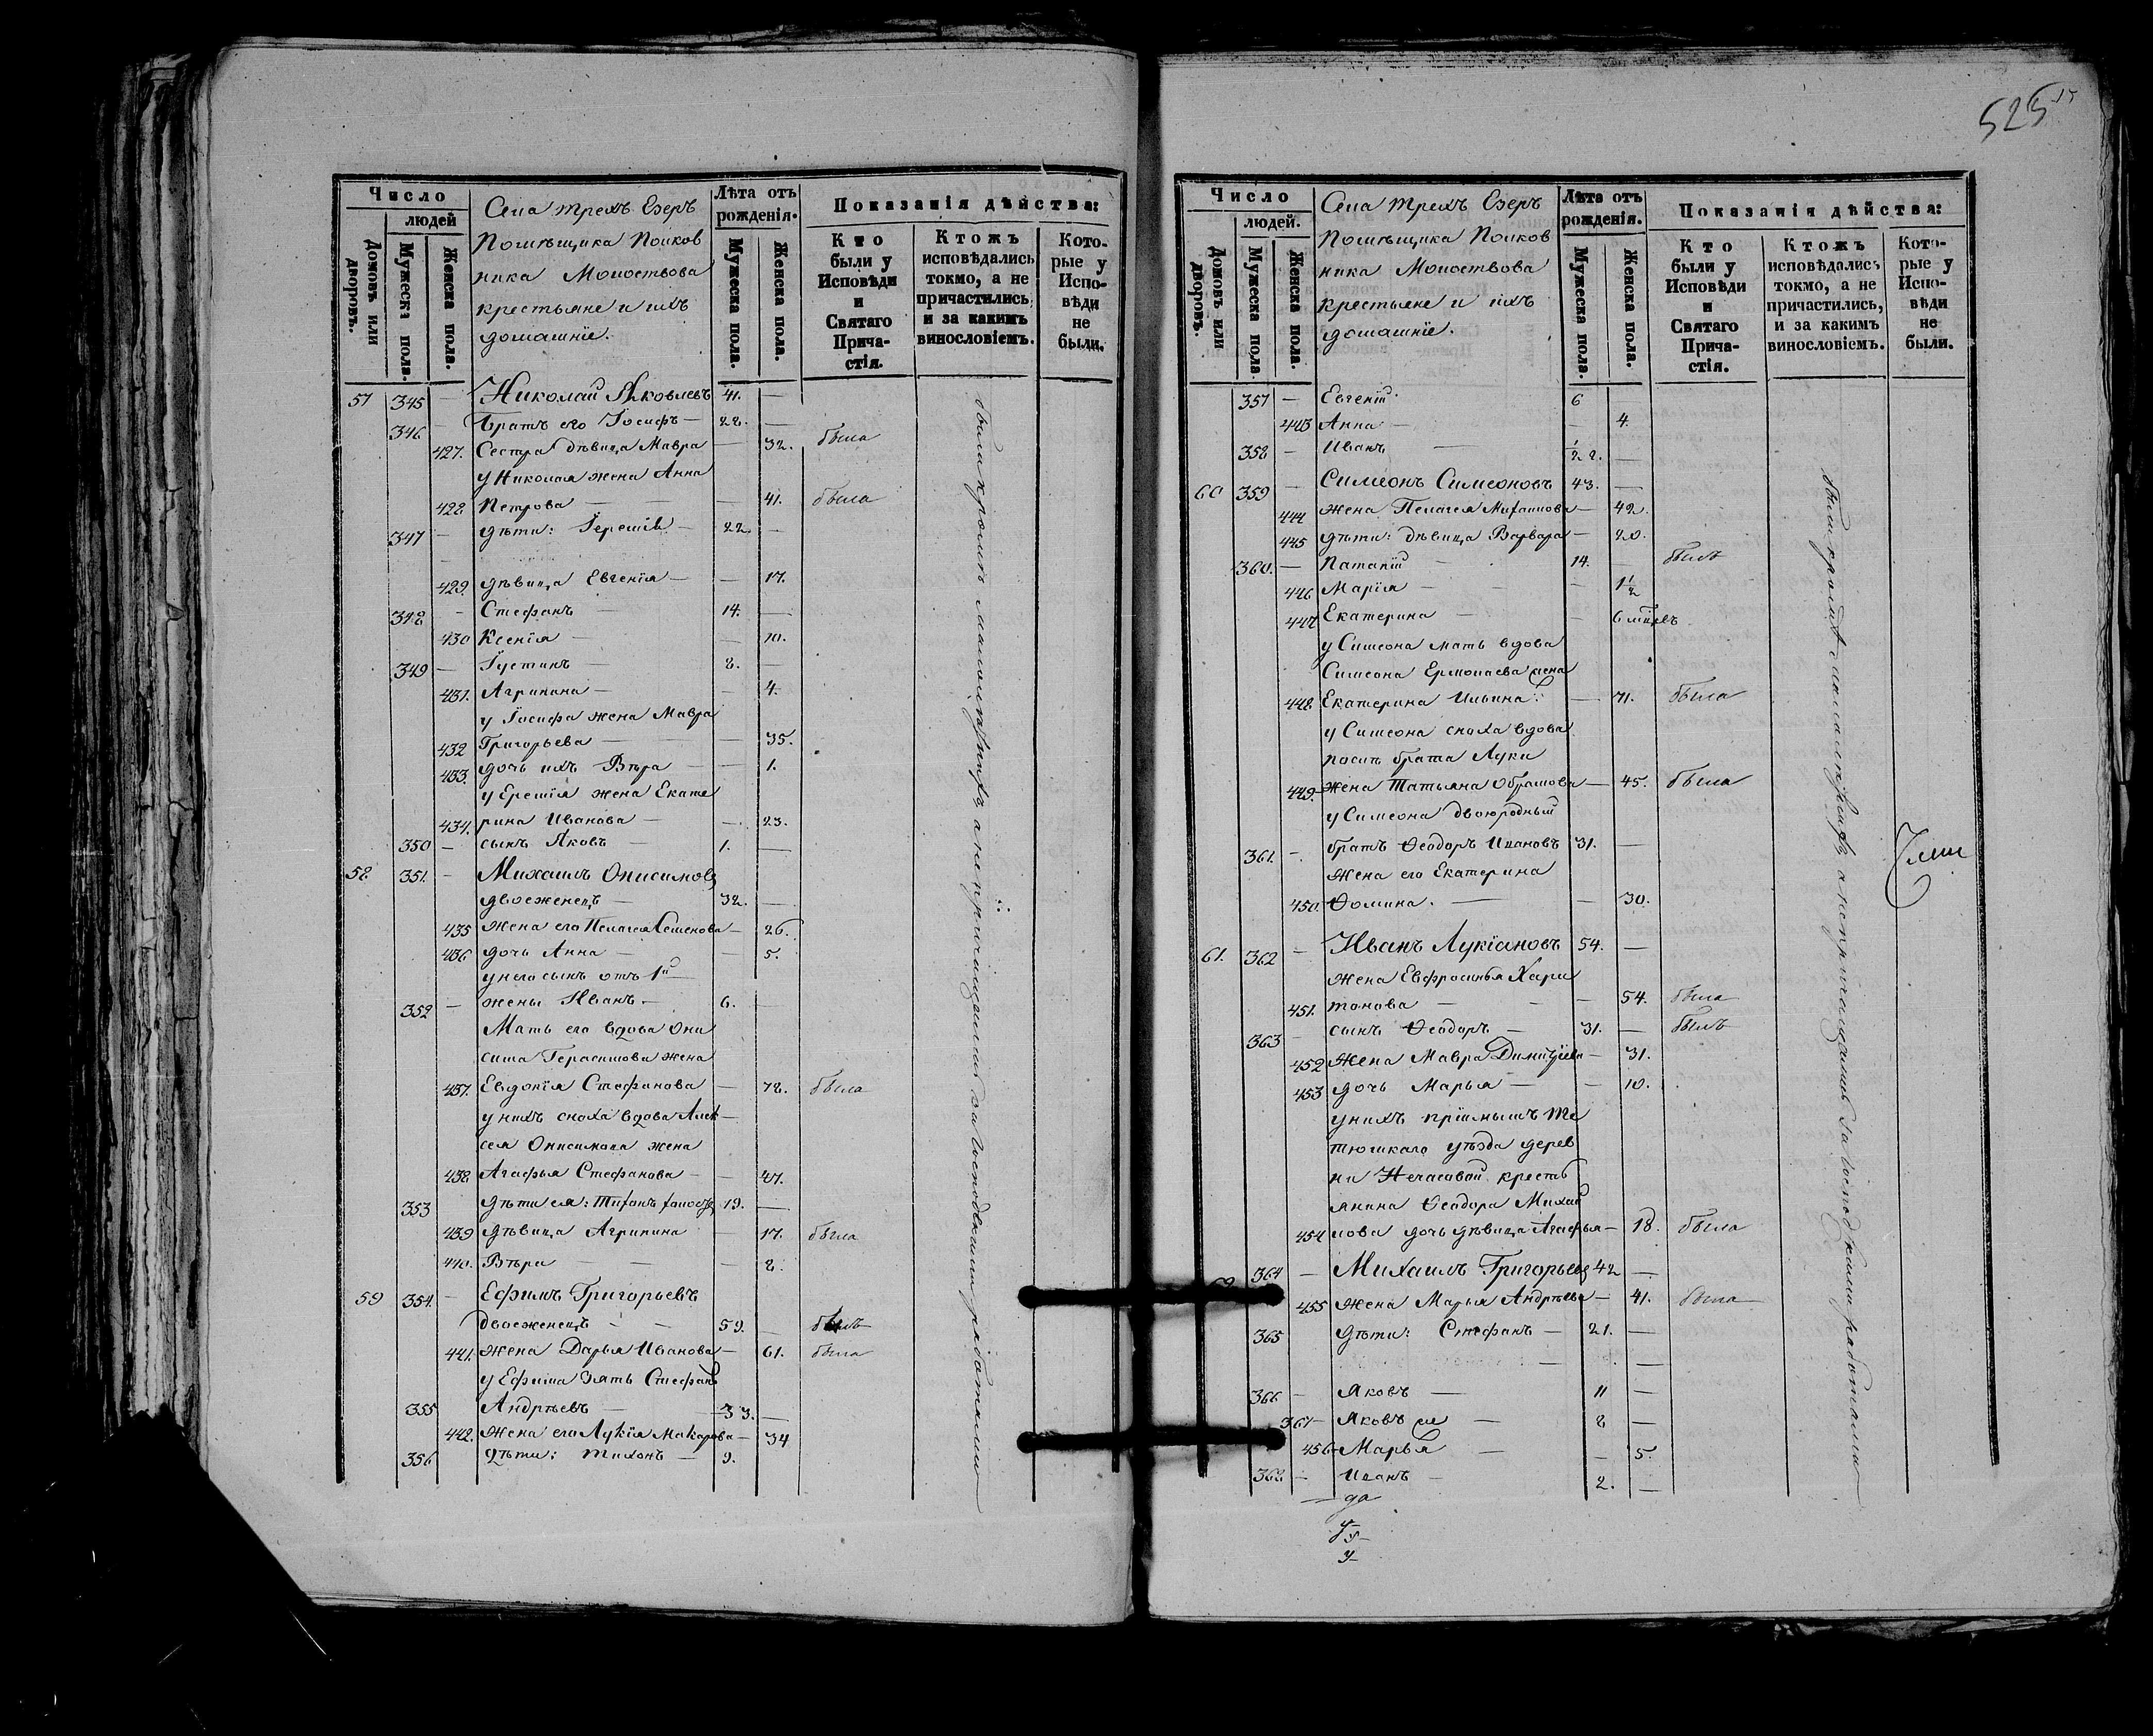 525
Число
людей
Домовъ или дворовъ.
Мужеска пола.
Женска пола.
Села трехъ Езеръ
Помѣщика Полков
ника Молоствова
крестьяне и ихъ
домашніе.
Лѣта отъ рожденія.
Мужеска пола.
Женска пола.
Показанія дѣйства:
Кто были у Исповѣди и Святаго Прича-стія.
Ктожъ исповѣдались токмо, а не причастились, и за какимъ винословіемъ.
Кото-рые у Испо-вѣди не были.
57 345 — Николай Яковлевъ 41. —
346 Братъ его Іосифъ — 28. —
427. Сестра дѣвица Мавра — 32. была
у Николая жена Анна
428 Петрова — — 41. была
347 — дѣти: Іеремій — 22. —
429. дѣвица Евгенія — — 17.
348 — Стефанъ — 14. —
430 Ксенія — — 10.
349 — Іустинъ — 8. —
431. Агрипина — — 4.
у Іосифа жена Мавра
432 Григорьева — — 35.
433. дочь ихъ Вѣра — — 1.
у Еремія жена Екате
434. рина Иванова — — 23.
350 — сынъ Яковъ — 1. —
58 351. — Михаилъ Онисимовъ
двоеженецъ — 32. —
435 жена его Пелагея Семенова — 26.
436 дочь Анна — — 5.
у него сынъ отъ 1й
352 — жены Иванъ — 6. —
Мать его вдова Они
сима Герасимова жена
437. Евдокія Стефанова — 78. была
у нихъ сноха вдова Алек
сея Онисимова жена
438 Агафья Стефанова — — 47.
353 дѣти ея: Тихонъ холостъ 19. —
439 дѣвица Агрипина — 17. была
440. Вѣра — — — 8.
59 354. — Ефимъ Григорьевъ
двоеженецъ — — 59. — былъ
441. жена Дарья Иванова — 61. была
у Ефима зять Стефанъ
355 Андрѣевъ — 33. —
442. жена его Лукія Макарова — 34
356 дѣти: Тихонъ — 9.
были кромѣ малолѣтнихъ а не причащались за Господскими работами
Число
людей.
Домовъ или дворовъ.
Мужеска пола.
Женска пола.
Села трехъ Езеръ
Помѣщика Полков
ника Молоствова
крестьяне и ихъ
домашніе.
Лѣта отъ рожденія.
Мужеска пола.
Женска пола.
Показанія дѣйства:
Кто были у Исповѣди и Святаго Прича-стія.
Ктожъ исповѣдались токмо, а не причастились, и за какимъ винословіемъ.
Кото-рые у Испо-вѣди не были.
357 — Евгеній 6
443 Анна — — 4.
358 — Иванъ —
60 359 — Симеонъ Симеоновъ 43. —
444 жена Пелагея Михаилова — 42.
445 дѣти: дѣвица Варвара — 20.
360. — Патапій — 14. — былъ
446 Марія — — 1½
447 Екатерина — — 6 мцевъ
у Симеона мать вдова
Симеона Ермолаева жена
448 Екатерина Ильина — 71. была
у Симеона сноха вдова
послѣ брата Луки
449. жена Татьяна Абрамова — 45. была
у Симеона двоюродный
361. — братъ Ѳеодоръ Ивановъ 31. —
жена его Екатерина
450. Ѳомина. — — 30.
61. 362 — Иванъ Лукіановъ 54. —
жена Евфросинья Хари
451. тонова — — 54. была
363 сынъ Ѳеодоръ — 31. — былъ
452 жена Мавра Димитріева — 31.
453 дочь Марья — — 10.
у нихъ пріімышъ Те
тюшкаго уѣзда дерев
ни Нечасовой кресть
янина Ѳеодора Михаи
454 лова дочь дѣвица Агафья — 18. была
62 364 — Михаилъ Григорьевъ 42 —
455 жена Марья Андрѣева — 41. была
365 дѣти: Стефанъ — 21. —
366 — Яковъ — 11 —
367 — Яковъ — 8 —
456 Марья — — 5.
368 — Иванъ — 2. —
были кромѣ малолѣтнихъ а не причащались за Господскими работами